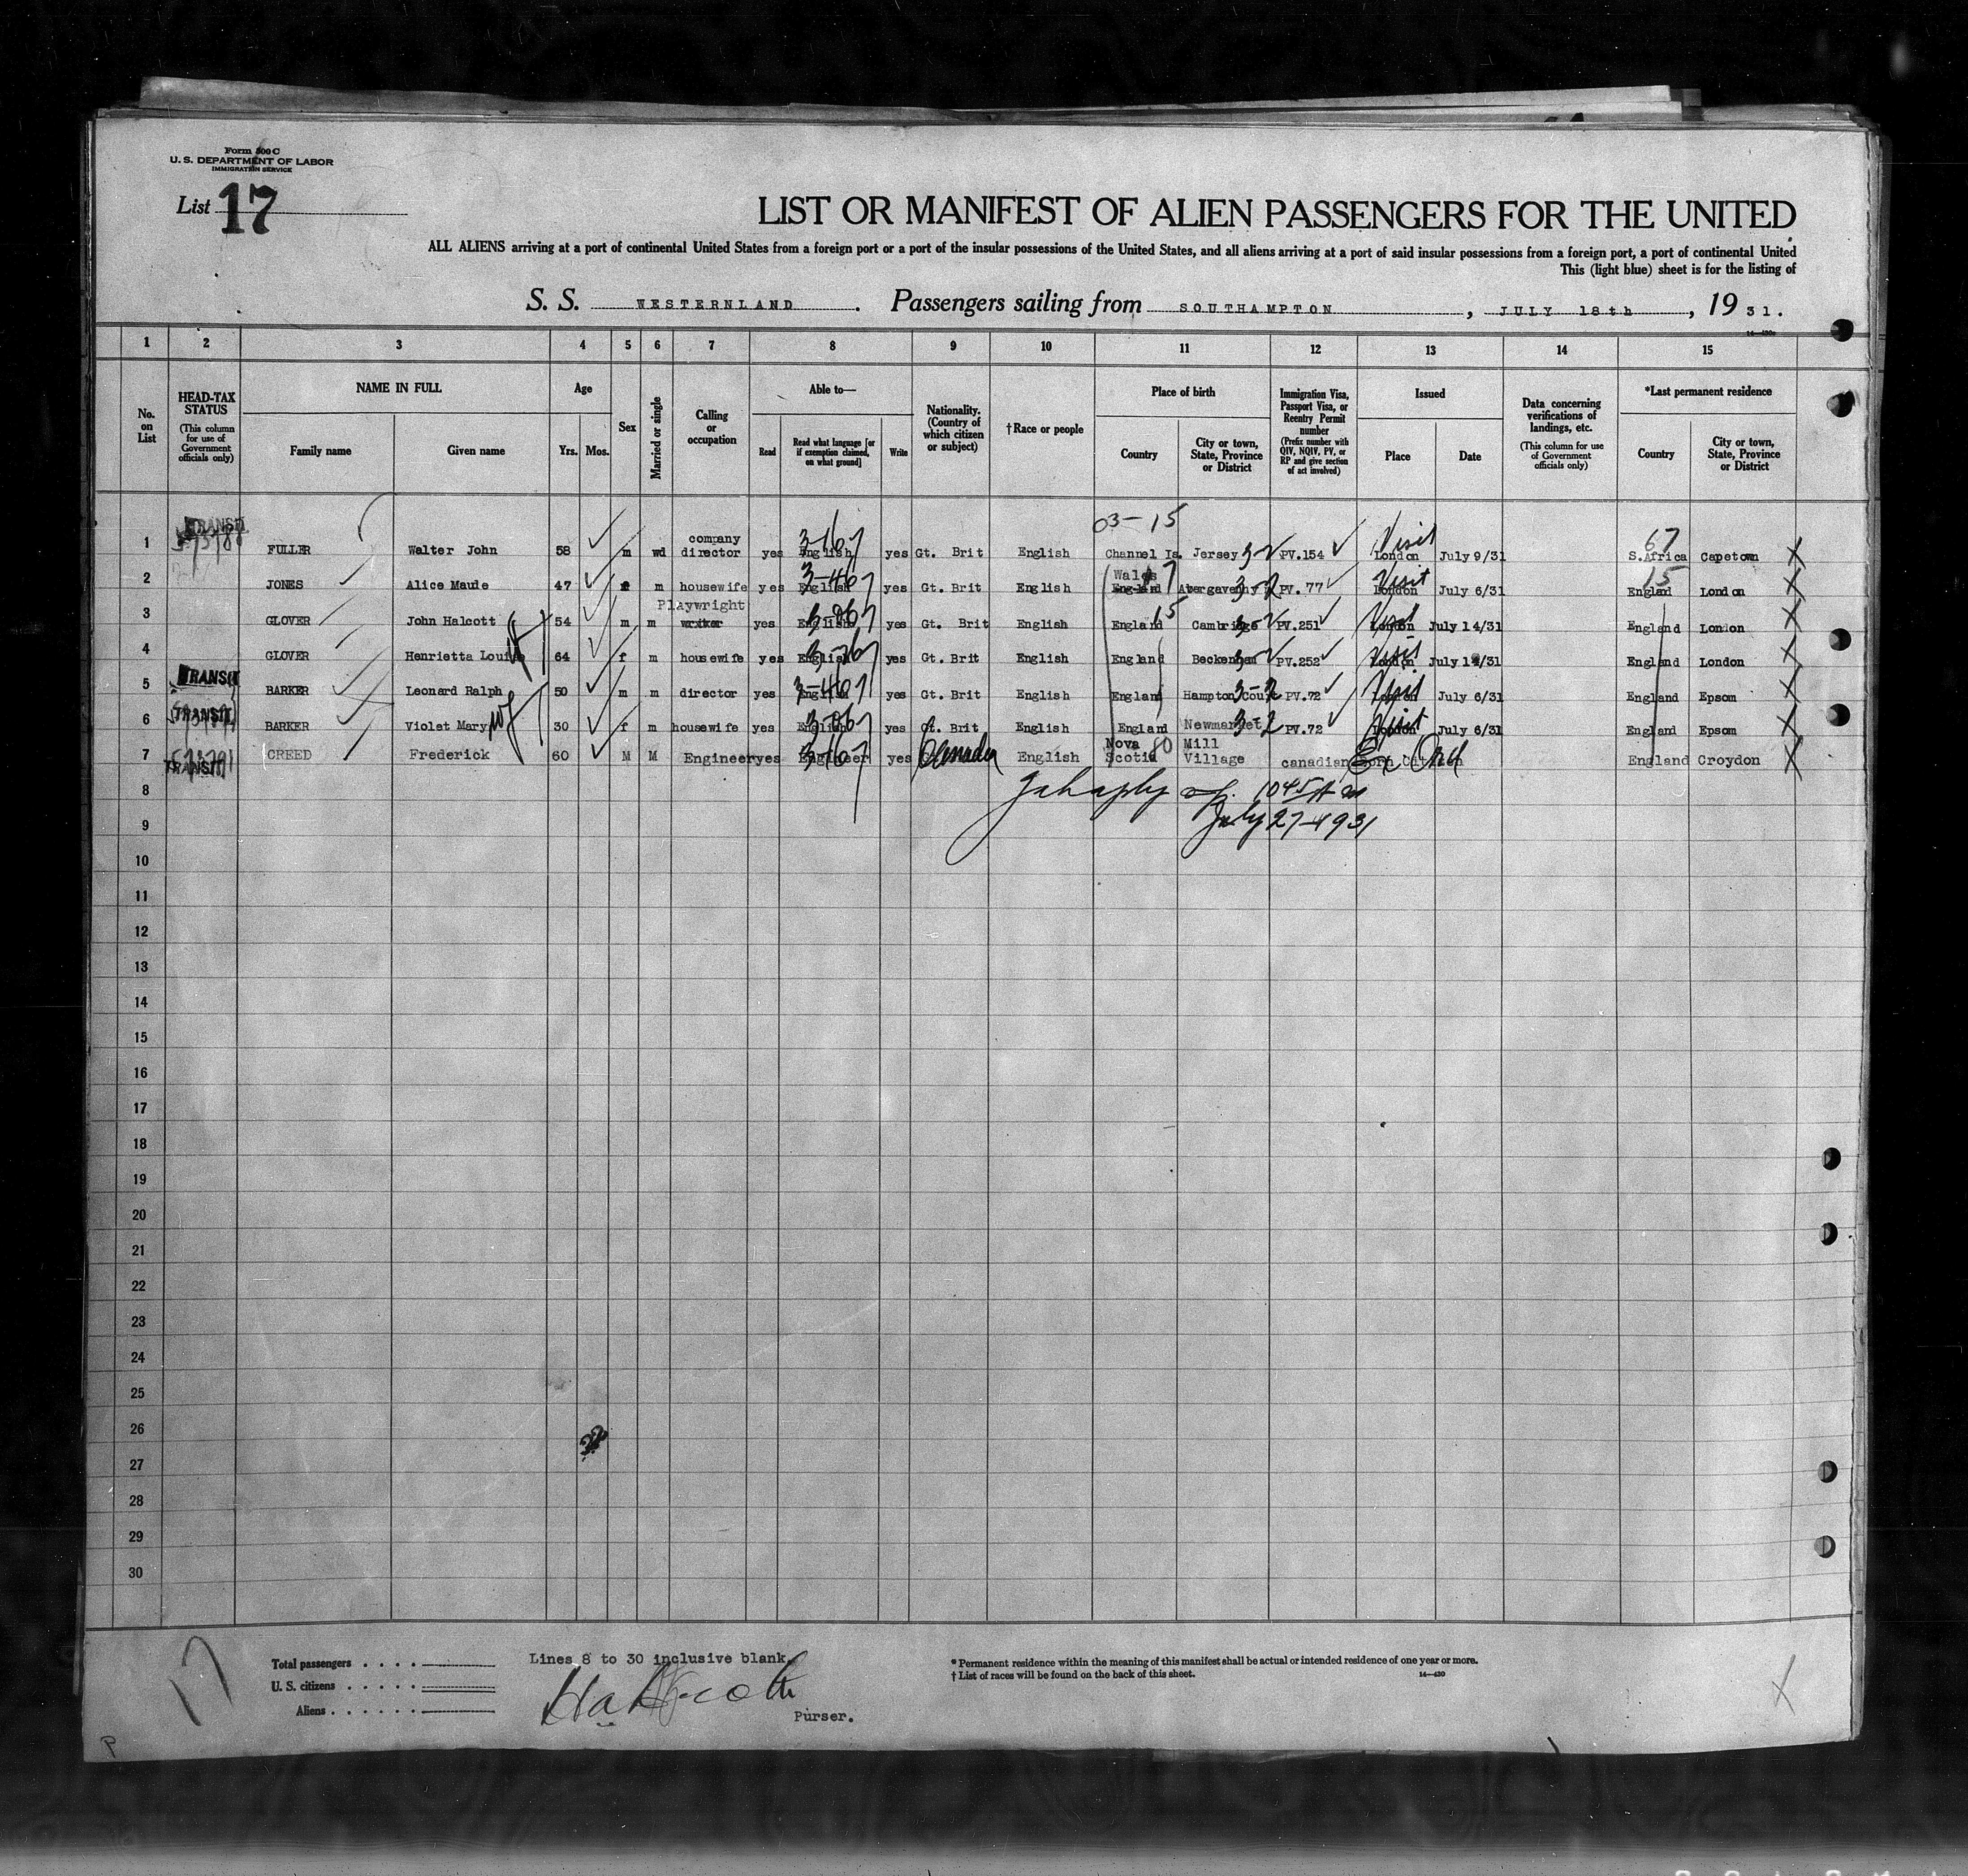 Form 500 C
U. S. DEPARTMENT OF LABOR
IMMIGRATION SERVICE
List 17
LIST OR MANIFEST OF ALIEN PASSENGERS FOR THE UNITED
ALL ALIENS arriving at a port of continental United States from a foreign port or a port of the insular possessions of the United States, and all aliens arriving at a port of said insular possessions from a foreign port, a port of continental United
This (light blue) sheet is for the listing of
S. S. WESTERNLAND. Passengers sailing from SOUTHAMPTON, JULY 18th, 1931.
1 2 3 4 5 6 7 8 9 10 11 12 13 14 15
No. on List
HEAD-TAX STATUS (This column for use of Government officials only)
NAME IN FULL
Family name Given name
Age
Yrs. Mos.
Sex
Married or single
Calling or occupation
Able to—
Read Read what language [or if exemption claimed, on what ground] Write
Nationality. (Country of which citizen or subject)
†Race or people
Place of birth
Country City or town, State, Province or District
Immigration Visa, Passport Visa, or Reentry Permit number (Prefix number with QIV, NQIV, PV, or RP and give section of act involved)
Issued
Place Date
Data concerning verifications of landings, etc. (This column for use of Government officials only)
*Last permanent residence
Country City or town, State, Province or District
03-15
1 TRANSIT FULLER Walter John 58 m wd company director yes English 3-167 yes Gt. Brit English Channel Is. Jersey 3-2 PV.154 London Visit July 9/31 67 S.Africa Capetown X
2 JONES Alice Maude 47 f m housewife yes English 3-467 yes Gt. Brit English Wales England 17 Abergavenny 3-2 PV. 77 London Visit July 6/31 15 England London X
3 GLOVER John Halcott 54 m m Playwright yes English yes Gt. Brit English England 15 Cambridge 3-2 PV.251 London Visit July 14/31 England London X
4 GLOVER Henrietta Louise 64 f m housewife yes English yes Gt. Brit English England Beckenham 3-2 PV.252 London Visit July 14/31 England London X
5 TRANSIT BARKER Leonard Ralph 50 m m director yes English 3-467 yes Gt. Brit English England Hampton Court 3-2 PV.72 London Visit July 6/31 England Epsom X
6 TRANSIT BARKER Violet Mary wf 30 f m housewife yes English yes Gt. Brit English England Newmarket 3-2 PV.72 London Visit July 6/31 England Epsom X
7 TRANSIT CREED Frederick 60 M M Engineer yes Engineer 3-167 yes Canada English Nova Scotia 80 Mill Village canadian born Citizen England Croydon X
8 1045 Am
9 July 27-1931
10
11
12
13
14
15
16
17
18
19
20
21
22
23
24
25
26
27
28
29
30
17
Total passengers
U. S. citizens
Aliens
Lines 8 to 30 inclusive blank.
Purser.
* Permanent residence within the meaning of this manifest shall be actual or intended residence of one year or more.
† List of races will be found on the back of this sheet.
14—430